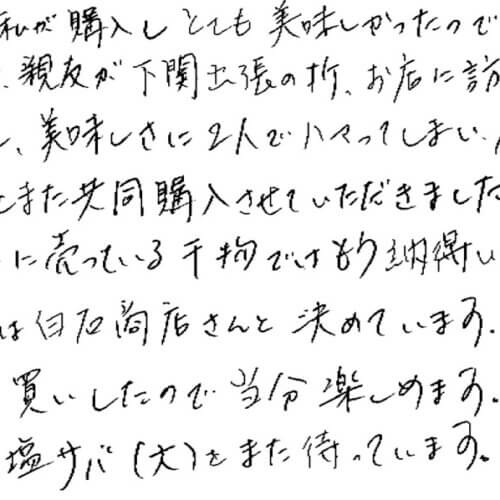 私が購入しとても美味しかったので
、親友が下関出張の折、お店に訪
し、美味しさに2人でハマってしまい、
また共同購入させていただきました
に売っている干物ではもう納得い
は白石商店さんと決めています。
買いしたので当分楽しめます。
塩サバ(大)をまた待っています。